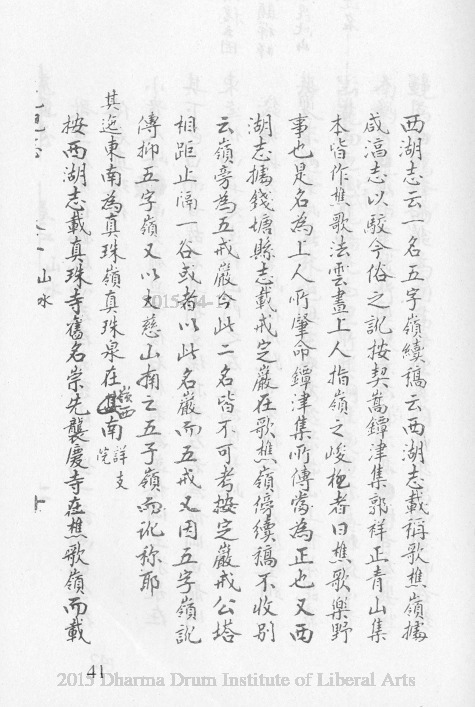 西湖志云一名五字嶺續稿云西湖志載稱歌樵嶺據
咸淳志以駮今俗之訛按契嵩鐔津集郭祥正青山集
本皆作樵歌法雲晝上人指嶺之峻㧞者曰樵歌樂野
事也是名為上人所肇命鐔津集所傳當為正也又西
湖志據錢塘縣志載戒定巖在歌樵嶺停續稿不收別
云嶺旁為五戒巖今此二名皆不可考按定巖戒公塔
相距止隔一谷或者以此名巖而五戒又因五字嶺訛
傳抑五字嶺又以大慈山南之五子嶺而訛称耶
其迤東南為真珠嶺真珠泉在嶺西南詳支
按西湖志載真珠寺舊名崇先襲慶寺在樵歌嶺而載
山水
41
2015 Dharma Drum Institute of Liberal Arts